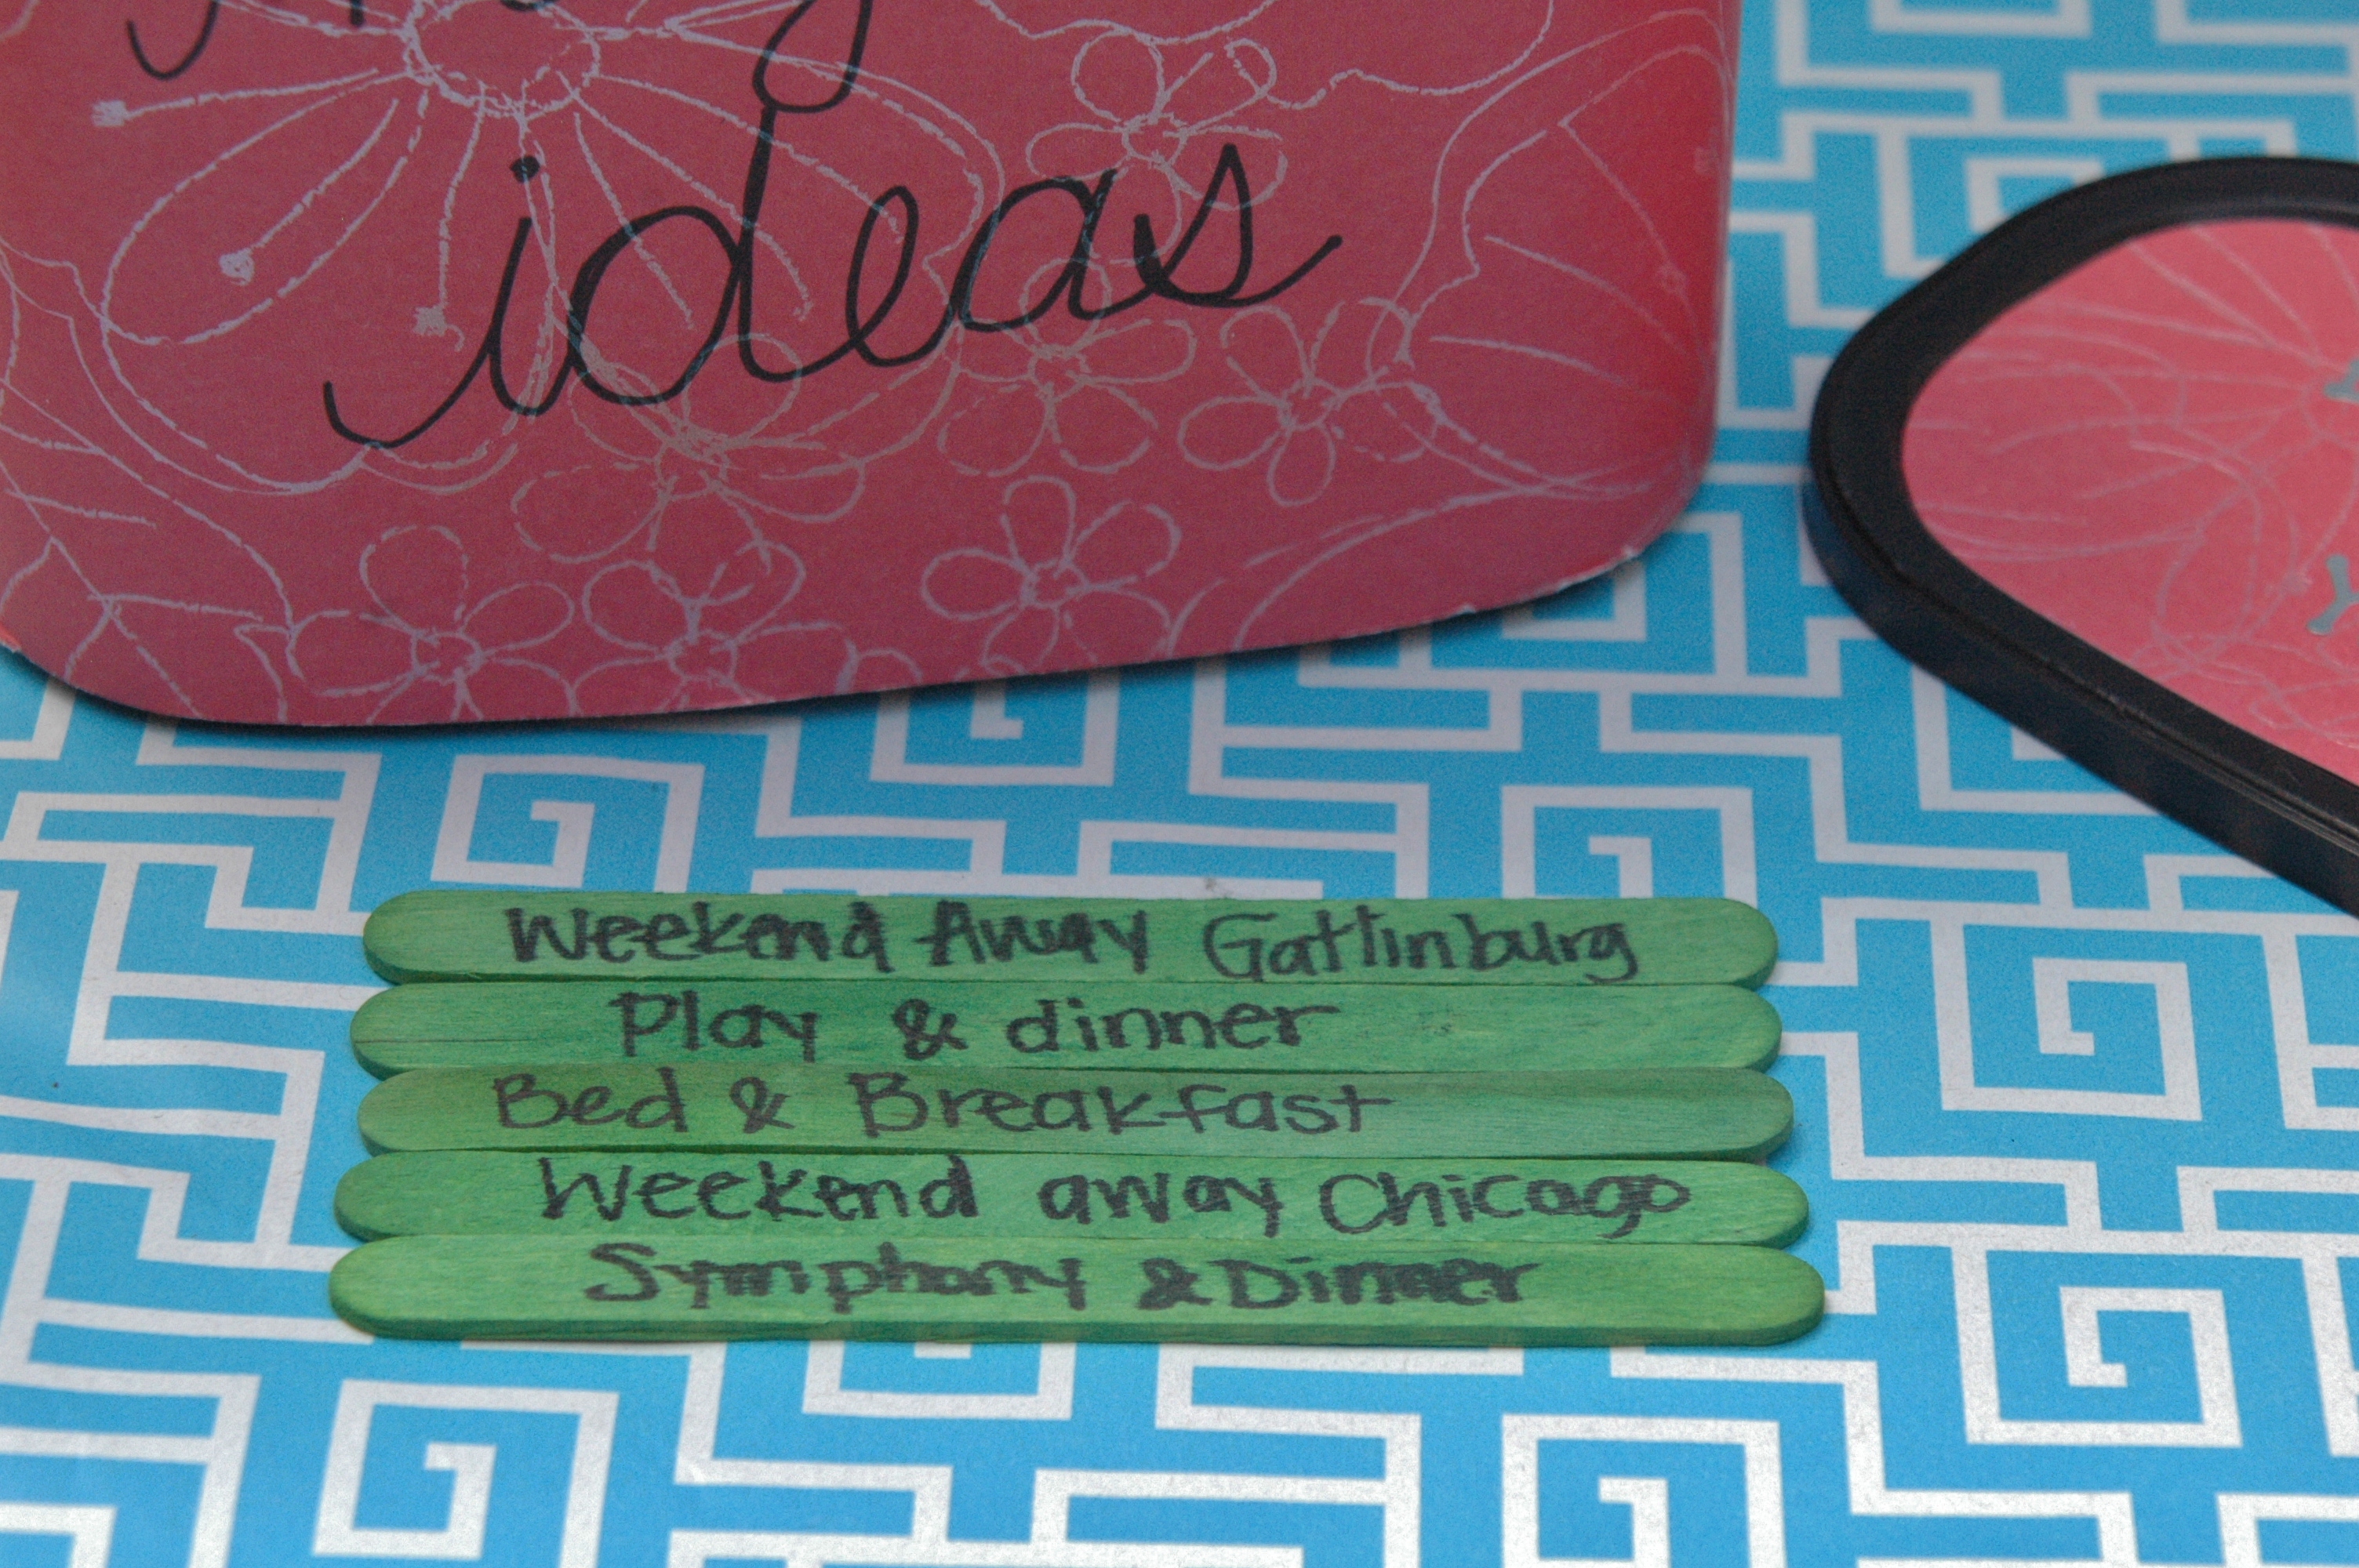 ideas
Weekend Away Gatlinburg
Play & dinner
Bed & Breakfast
Weekend away Chicago
Symphony & Dinner